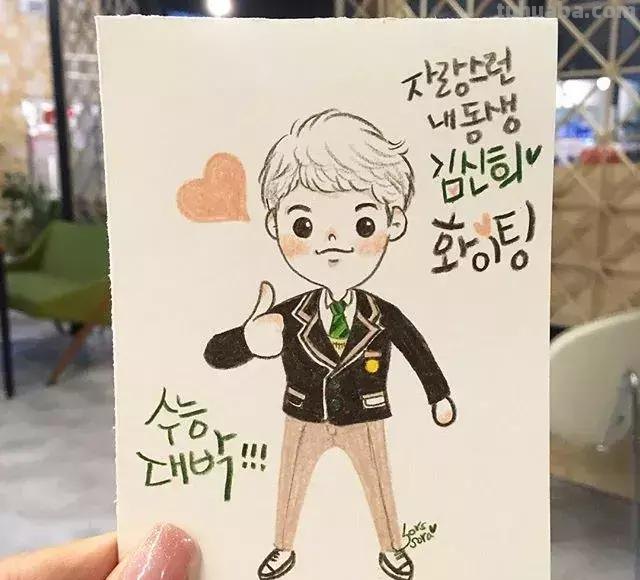 tuhuaba.com
자랑스런
내동생
김신희♥
화이팅
수능
대박!!!
sora♥